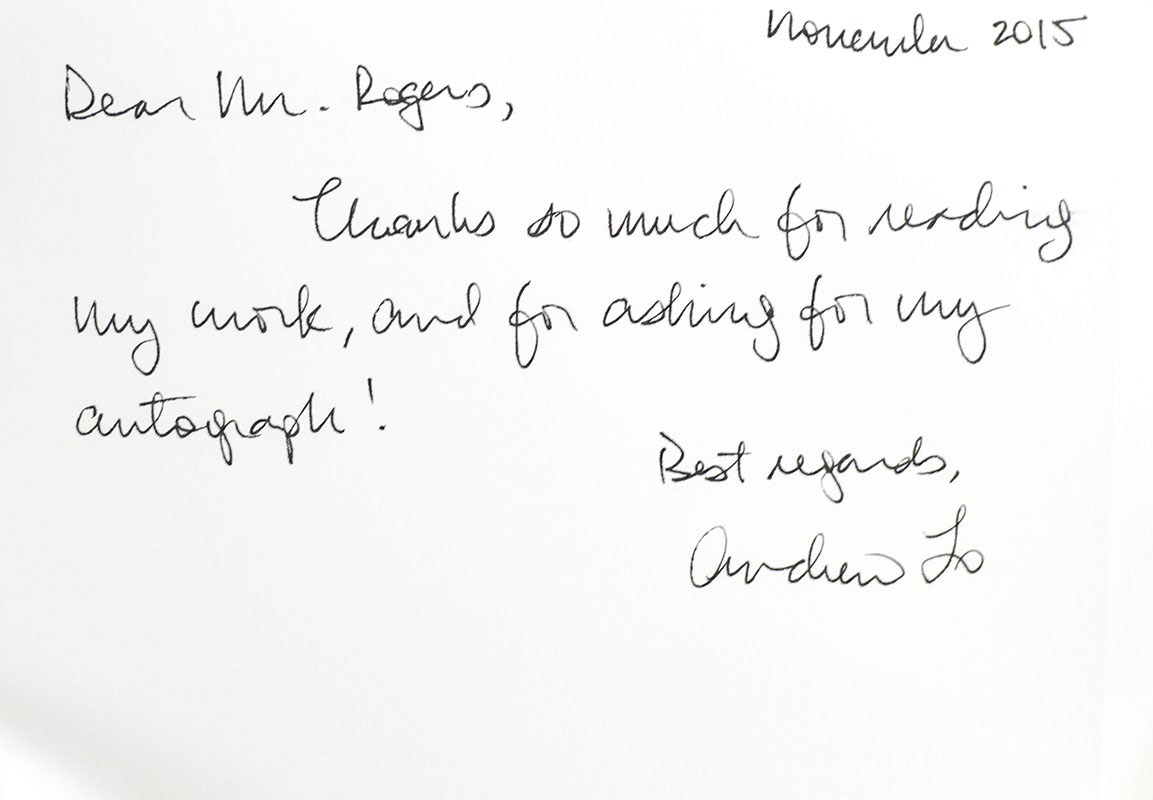 November 2015
Dear Mr. Rogers,
Thanks so much for reading
my work, and for asking for my
autograph!
Best regards,
Andrew Lo